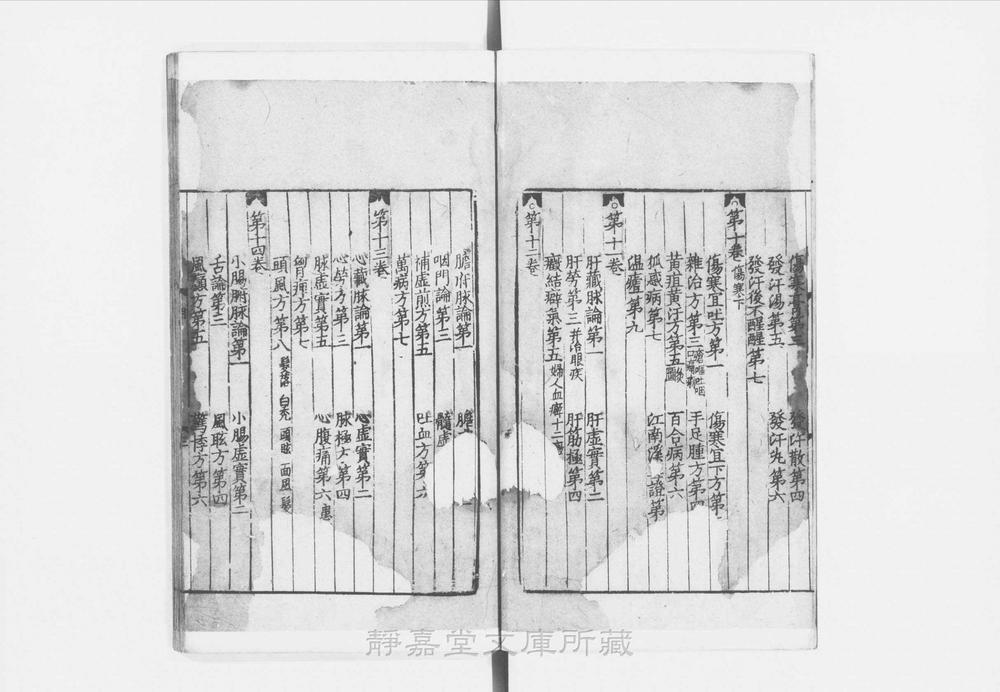 傷寒膏第三 發汗散第四
發汗湯第五 發汗丸第六
發汗後不醒醒第七
第十卷 傷寒下
傷寒宜吐方第一 傷寒宜下方第
雜治方第三 手足腫方第四
黃疸黃汗方第五 百合病第六
狐惑病第七 江南溪 證第
瘟瘧第九
第十一卷
肝藏脉論第一 肝虛實第二
肝勞第三 并治眼疾 肝筋極第四
癥結癖氣第五 婦人血癖十二
第十二卷
膽府脉論第一 膽
咽門論第三 髓虛
補虛煎方第五 吐血方第六
萬病方第七
第十三卷
心藏脉論第一 心虛實第二
心勞方第三 脉極方第四
脉虛實第五 心腹痛第六
胷痹方第七
頭風方第八 髮落 白禿 頭眩 面風 髮
第十四卷
小腸腑脉論第一 小腸虛實第二
舌論第三 風眩方第四
風癲方第五 驚悸方第六
靜嘉堂文庫所藏